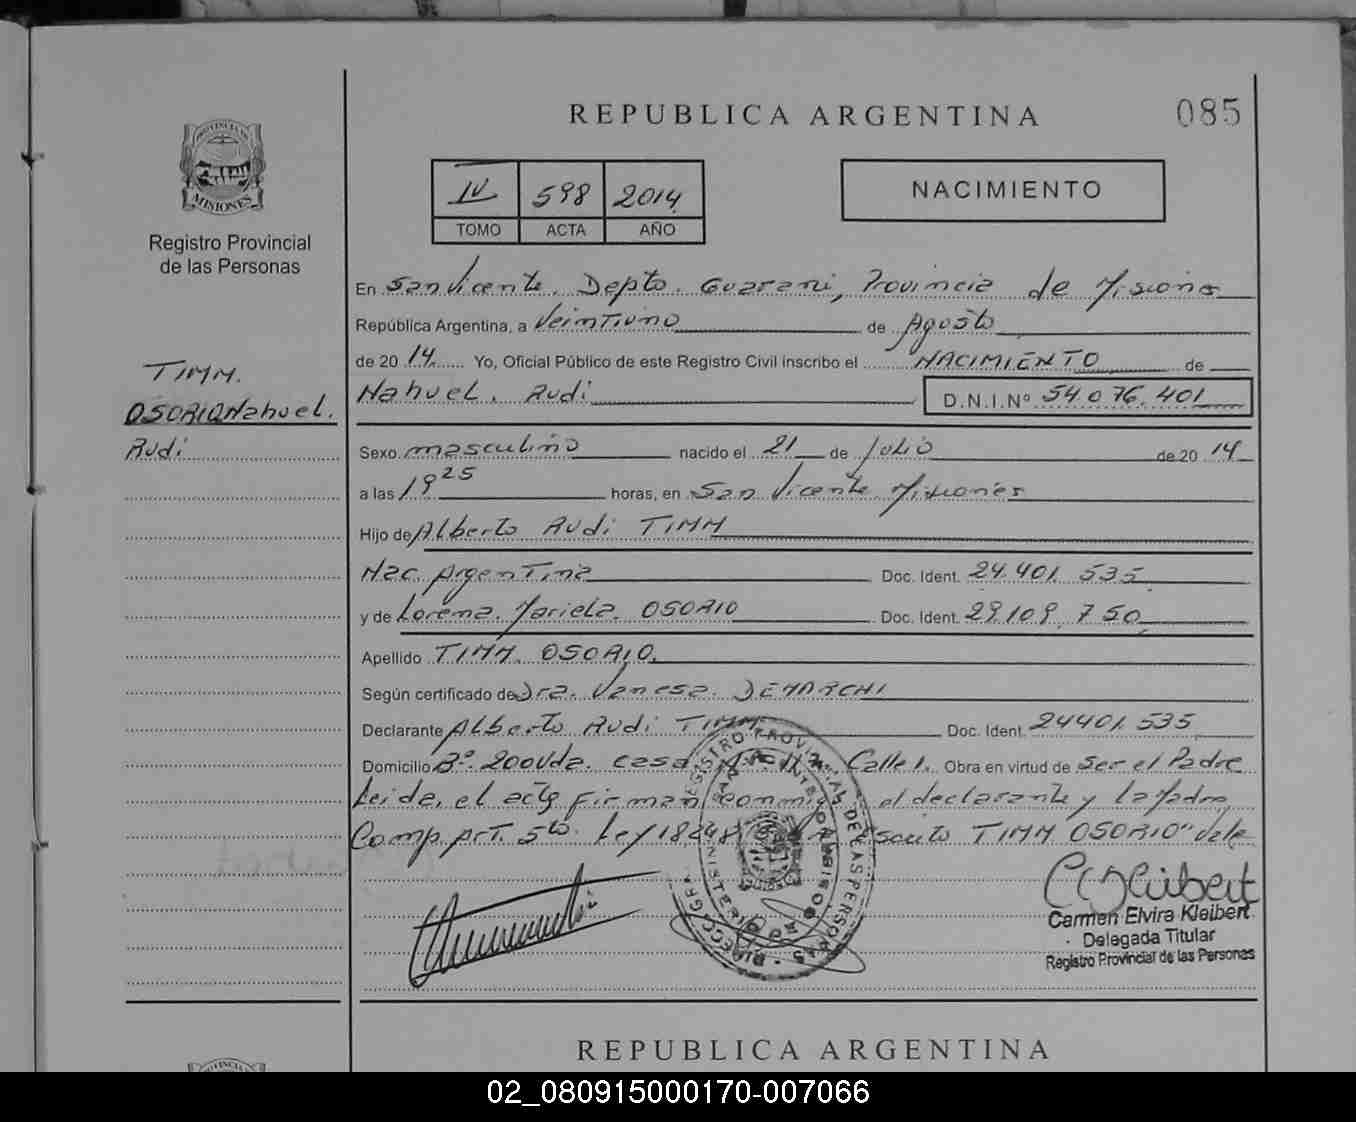 REPUBLICA ARGENTINA
085
PROVINCIA DE
MISIONES
Registro Provincial
de las Personas
IV 598 2014
TOMO ACTA AÑO
NACIMIENTO
En San Vicente, Depto. Guarani, Provincia de Misiones
República Argentina, a Veintiuno de Agosto
de 20 14 Yo, Oficial Público de este Registro Civil inscribo el NACIMIENTO de
Nahuel, Rudi D.N.I.Nº 54.076.401
TIMM.
OSORIO Nahuel.
Rudi
Sexo masculino nacido el 21 de Julio de 20 14
a las 19 25 horas, en San Vicente Misiones
Hijo de Alberto Rudi TIMM
Nac. Argentina Doc. Ident. 24.401.535
y de Lorena. Mariela. OSORIO Doc. Ident. 29.109.750
Apellido TIMM. OSORIO.
Según certificado de Dra. Vanesa. DEMARCHI
Declarante Alberto Rudi TIMM Doc. Ident. 24401.535
Domicilio Bº. 200 Vda. casa Calle 1. Obra en virtud de Ser el Padre
Leida, el acta firman el declarante y la Madre
Comp. Art. 5to. Ley 18248 TIMM OSORIO" Vale
REGISTRO PROVINCIAL DE LAS PERSONAS
Carmen Elvira Kleibert
Delegada Titular
Registro Provincial de las Personas
REPUBLICA ARGENTINA
02_080915000170-007066